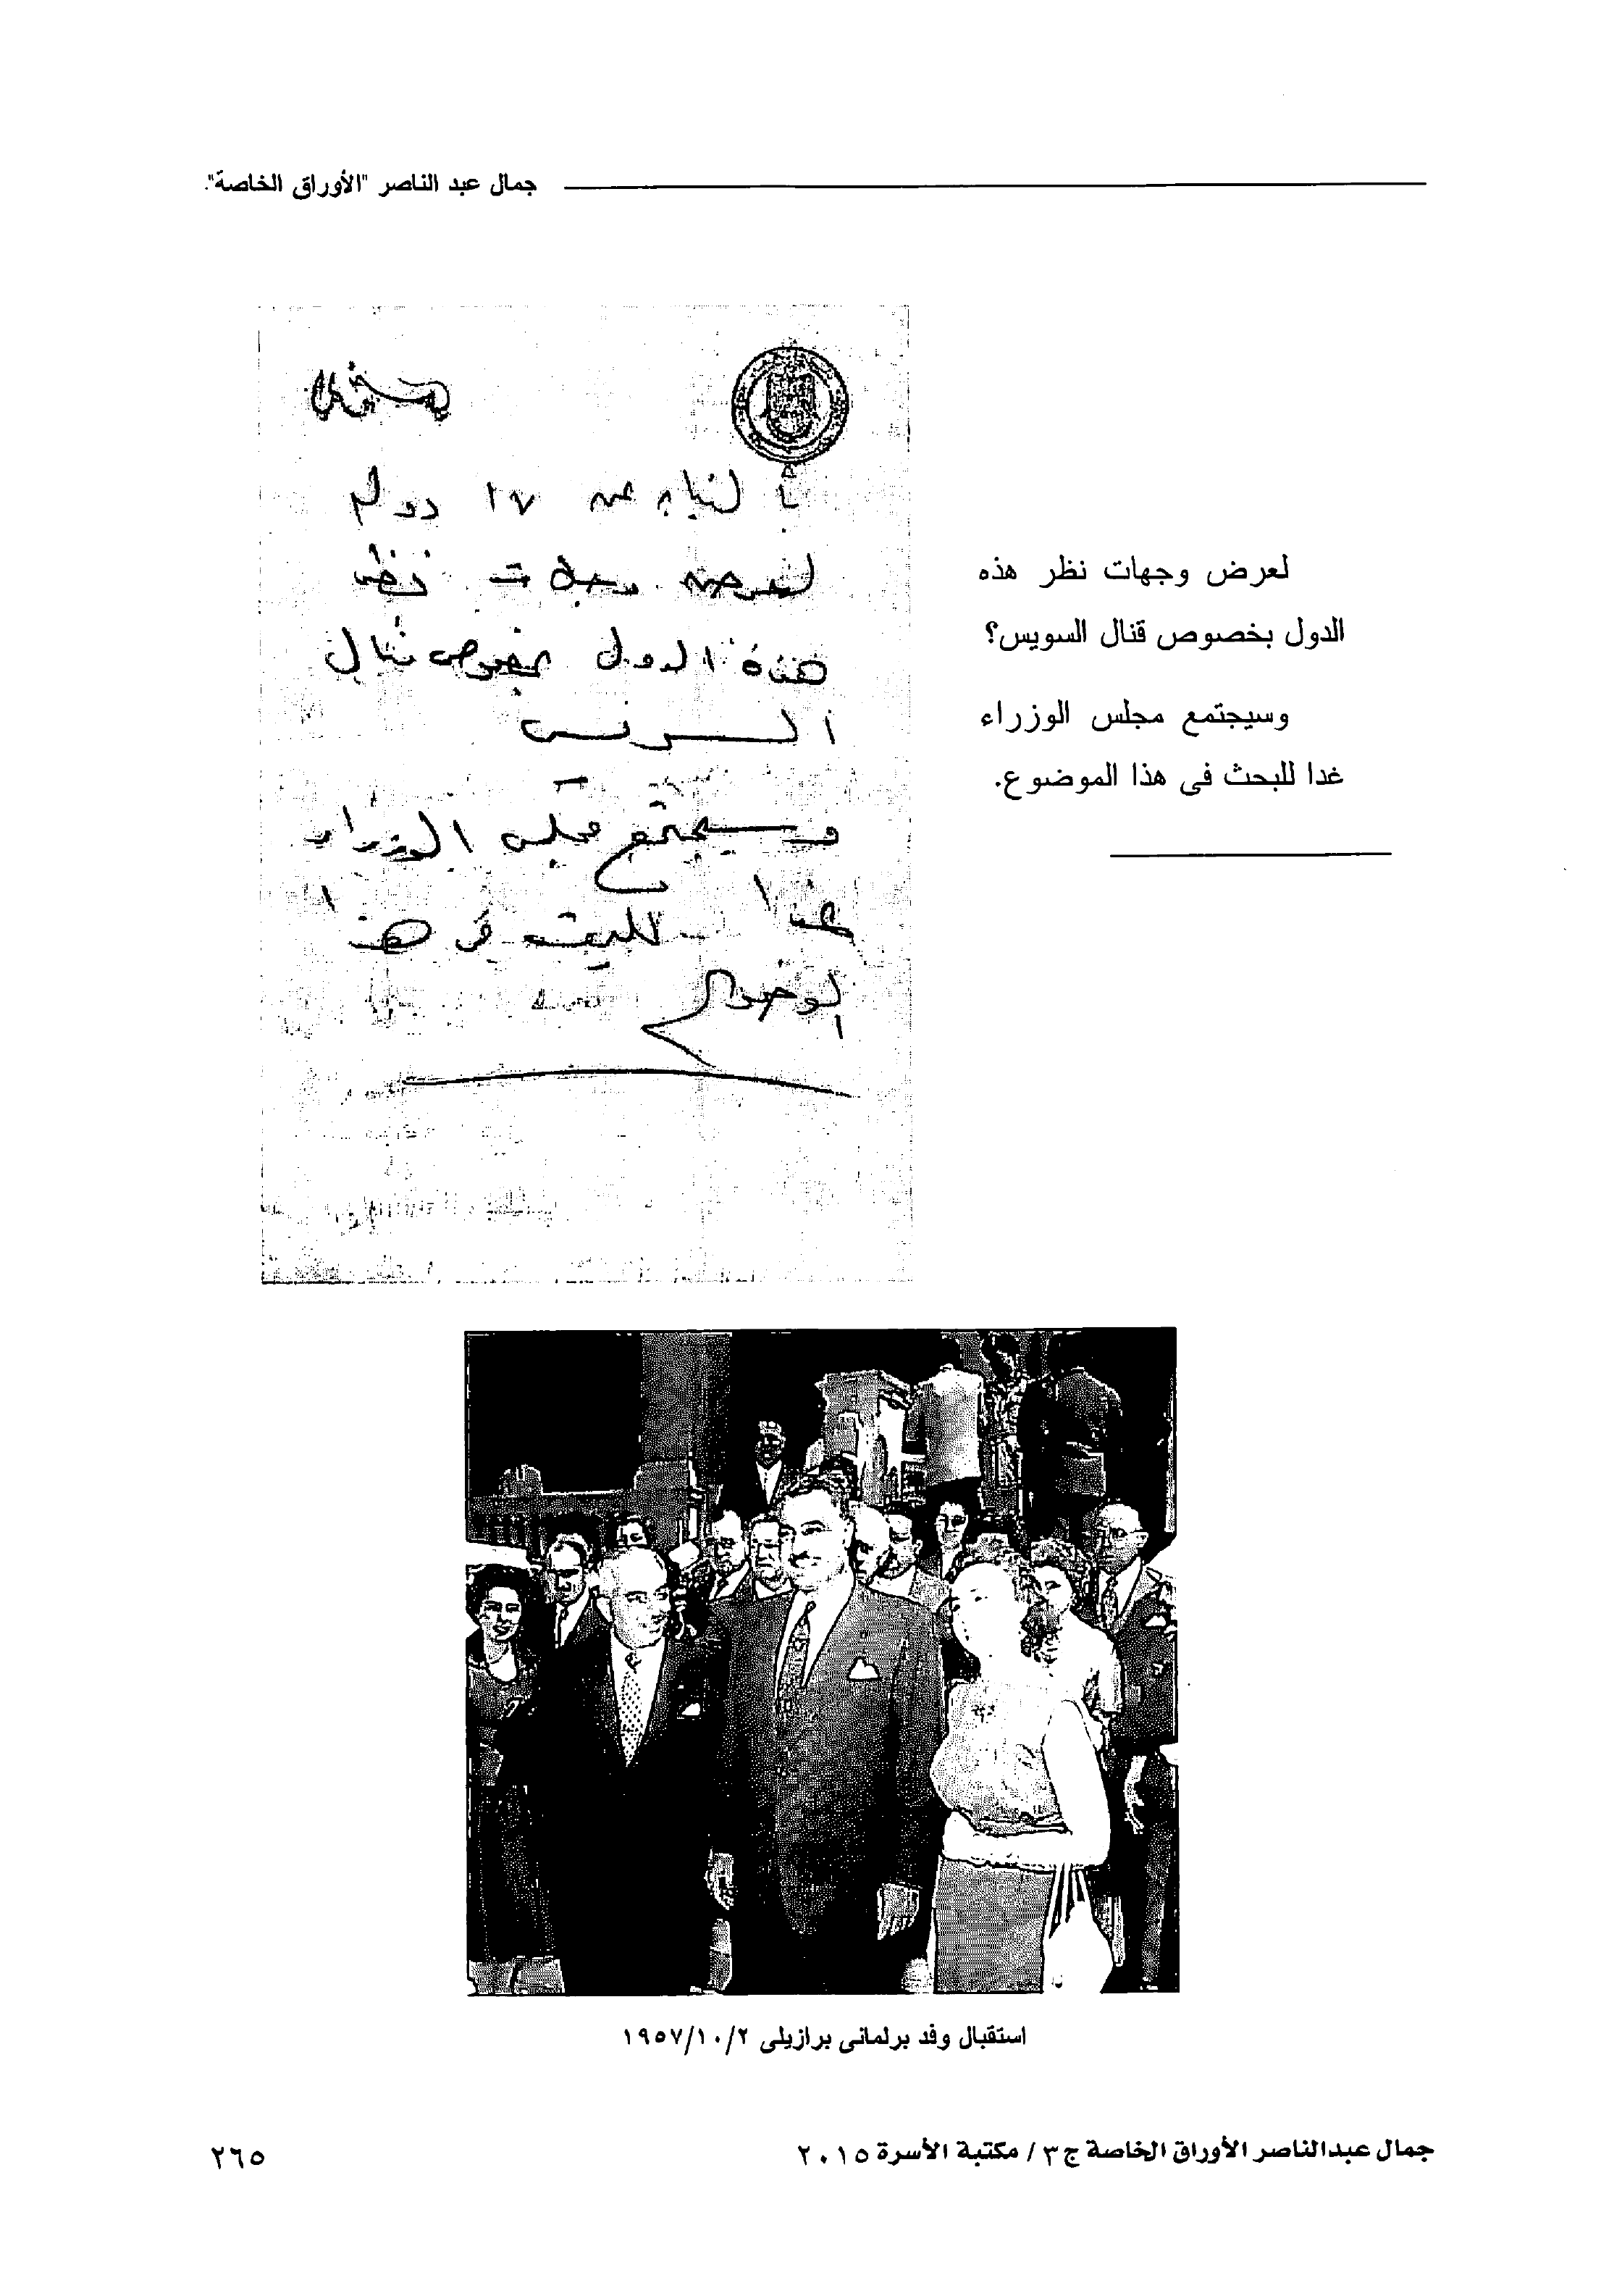 جمال عبد الناصر "الأوراق الخاصة".
بالنيابه عن ١٧ دوله
لعرض وجهات نظر
هذه الدول بخصوص قنال
السويس
وسيجتمع مجلس الوزراء
غدا للبحث في هذا
الموضوع
لعرض وجهات نظر هذه
الدول بخصوص قنال السويس؟
وسيجتمع مجلس الوزراء
غدا للبحث فى هذا الموضوع.
استقبال وفد برلمانى برازيلى ١٩٥٧/١٠/٢
جمال عبدالناصر الأوراق الخاصة ج٣ / مكتبة الأسرة ٢٠١٥
٢٦٥